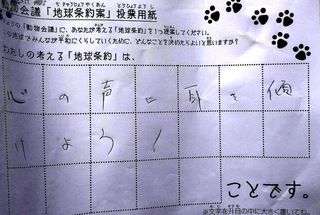 動物会議「地球条約案」投票用紙
「動物会議」に、あなたが考える「地球条約」を1つ提案してください。
地球でみんなが平和にくらしていくために、どんなことを決めたらよいと思いますか？
わたしの考える「地球条約」は、
心の声に耳を傾
けよう！
ことです。
※文字を升目の中に大きく書いてね。